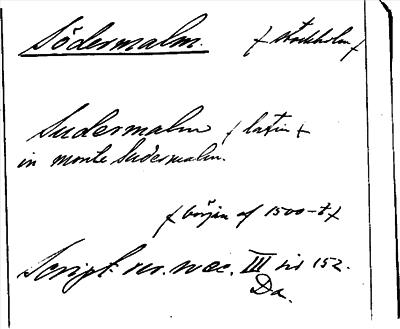 Södermalm. / Stockholm /
Sudermalm / latin /
in monte Sudermalm.
/ början af 1500-t /
Script. rer. svec. III sid 152.
Da.